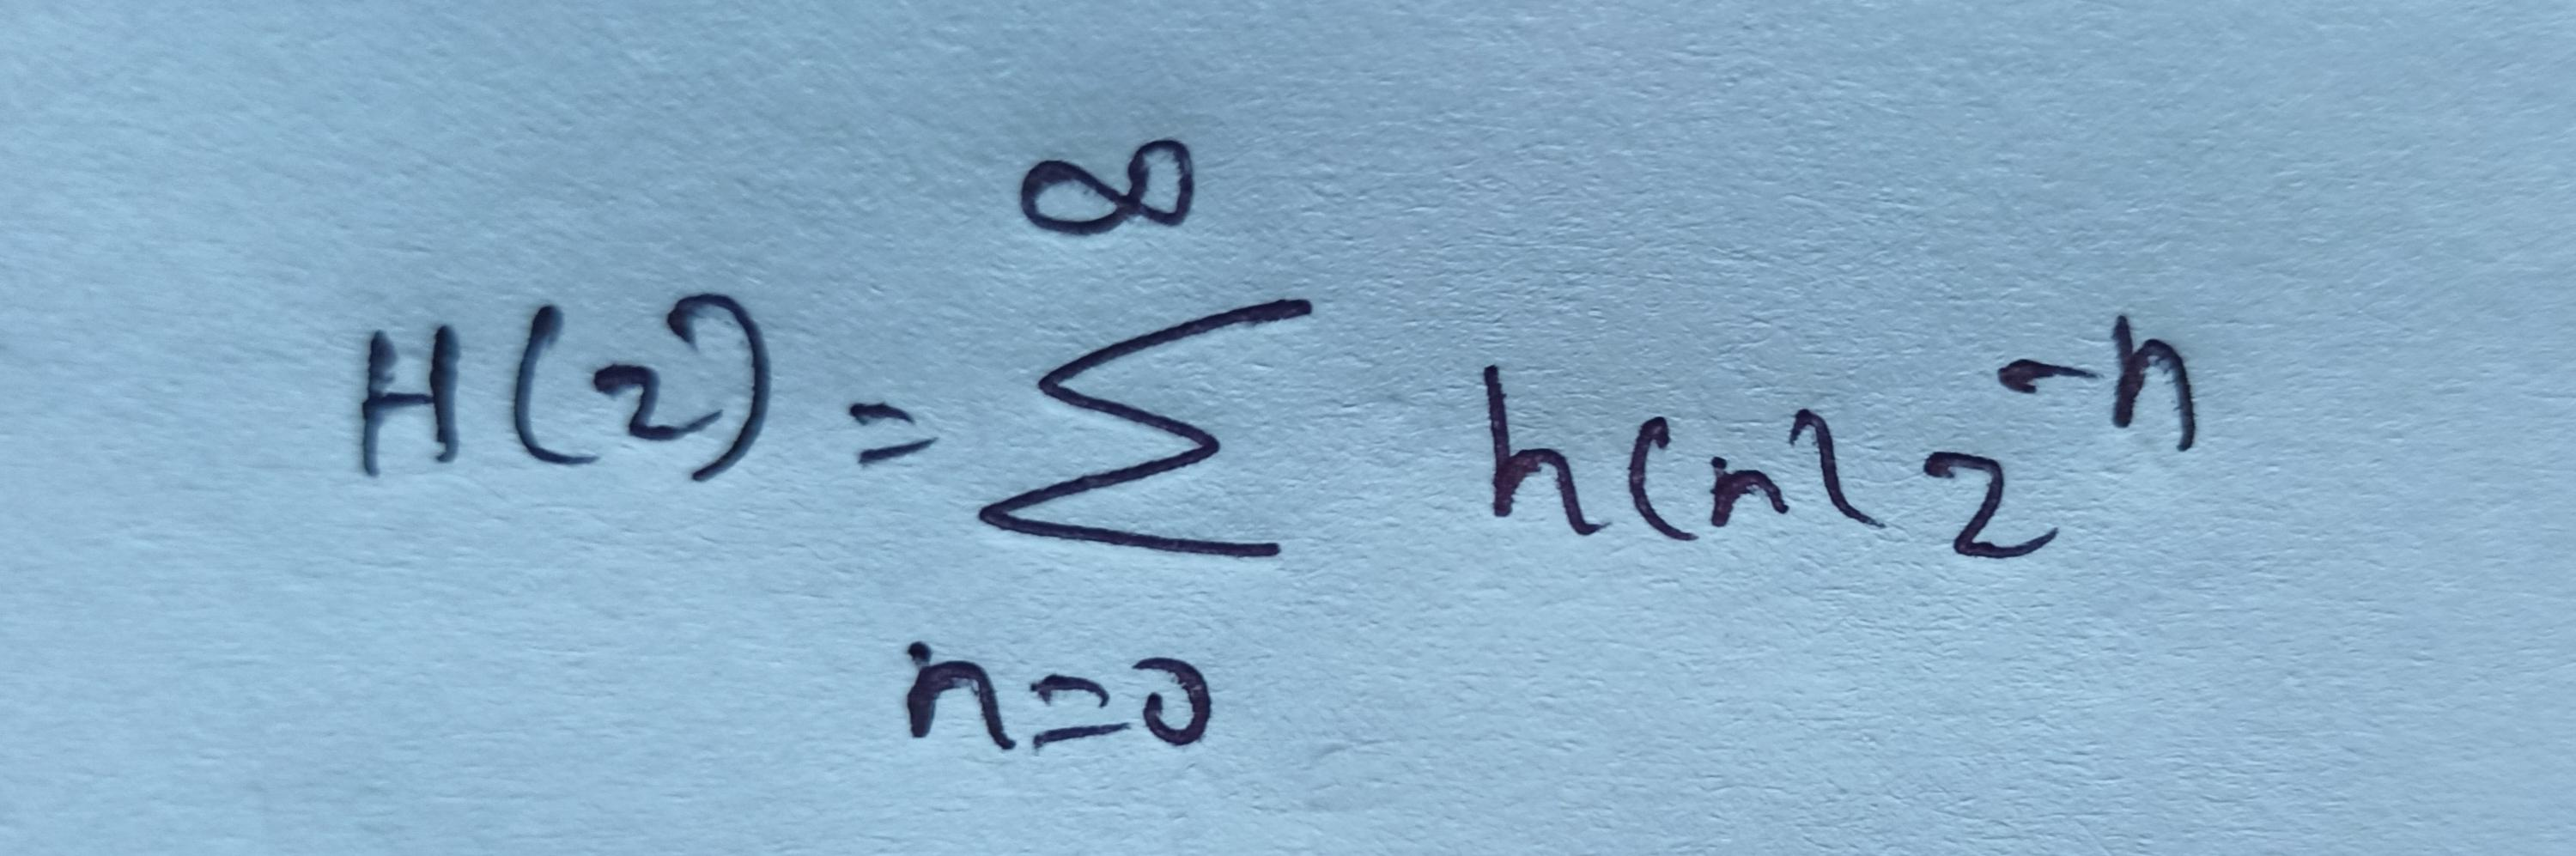 H(z) = ∞ ∑ n=0 h(n) z^-n